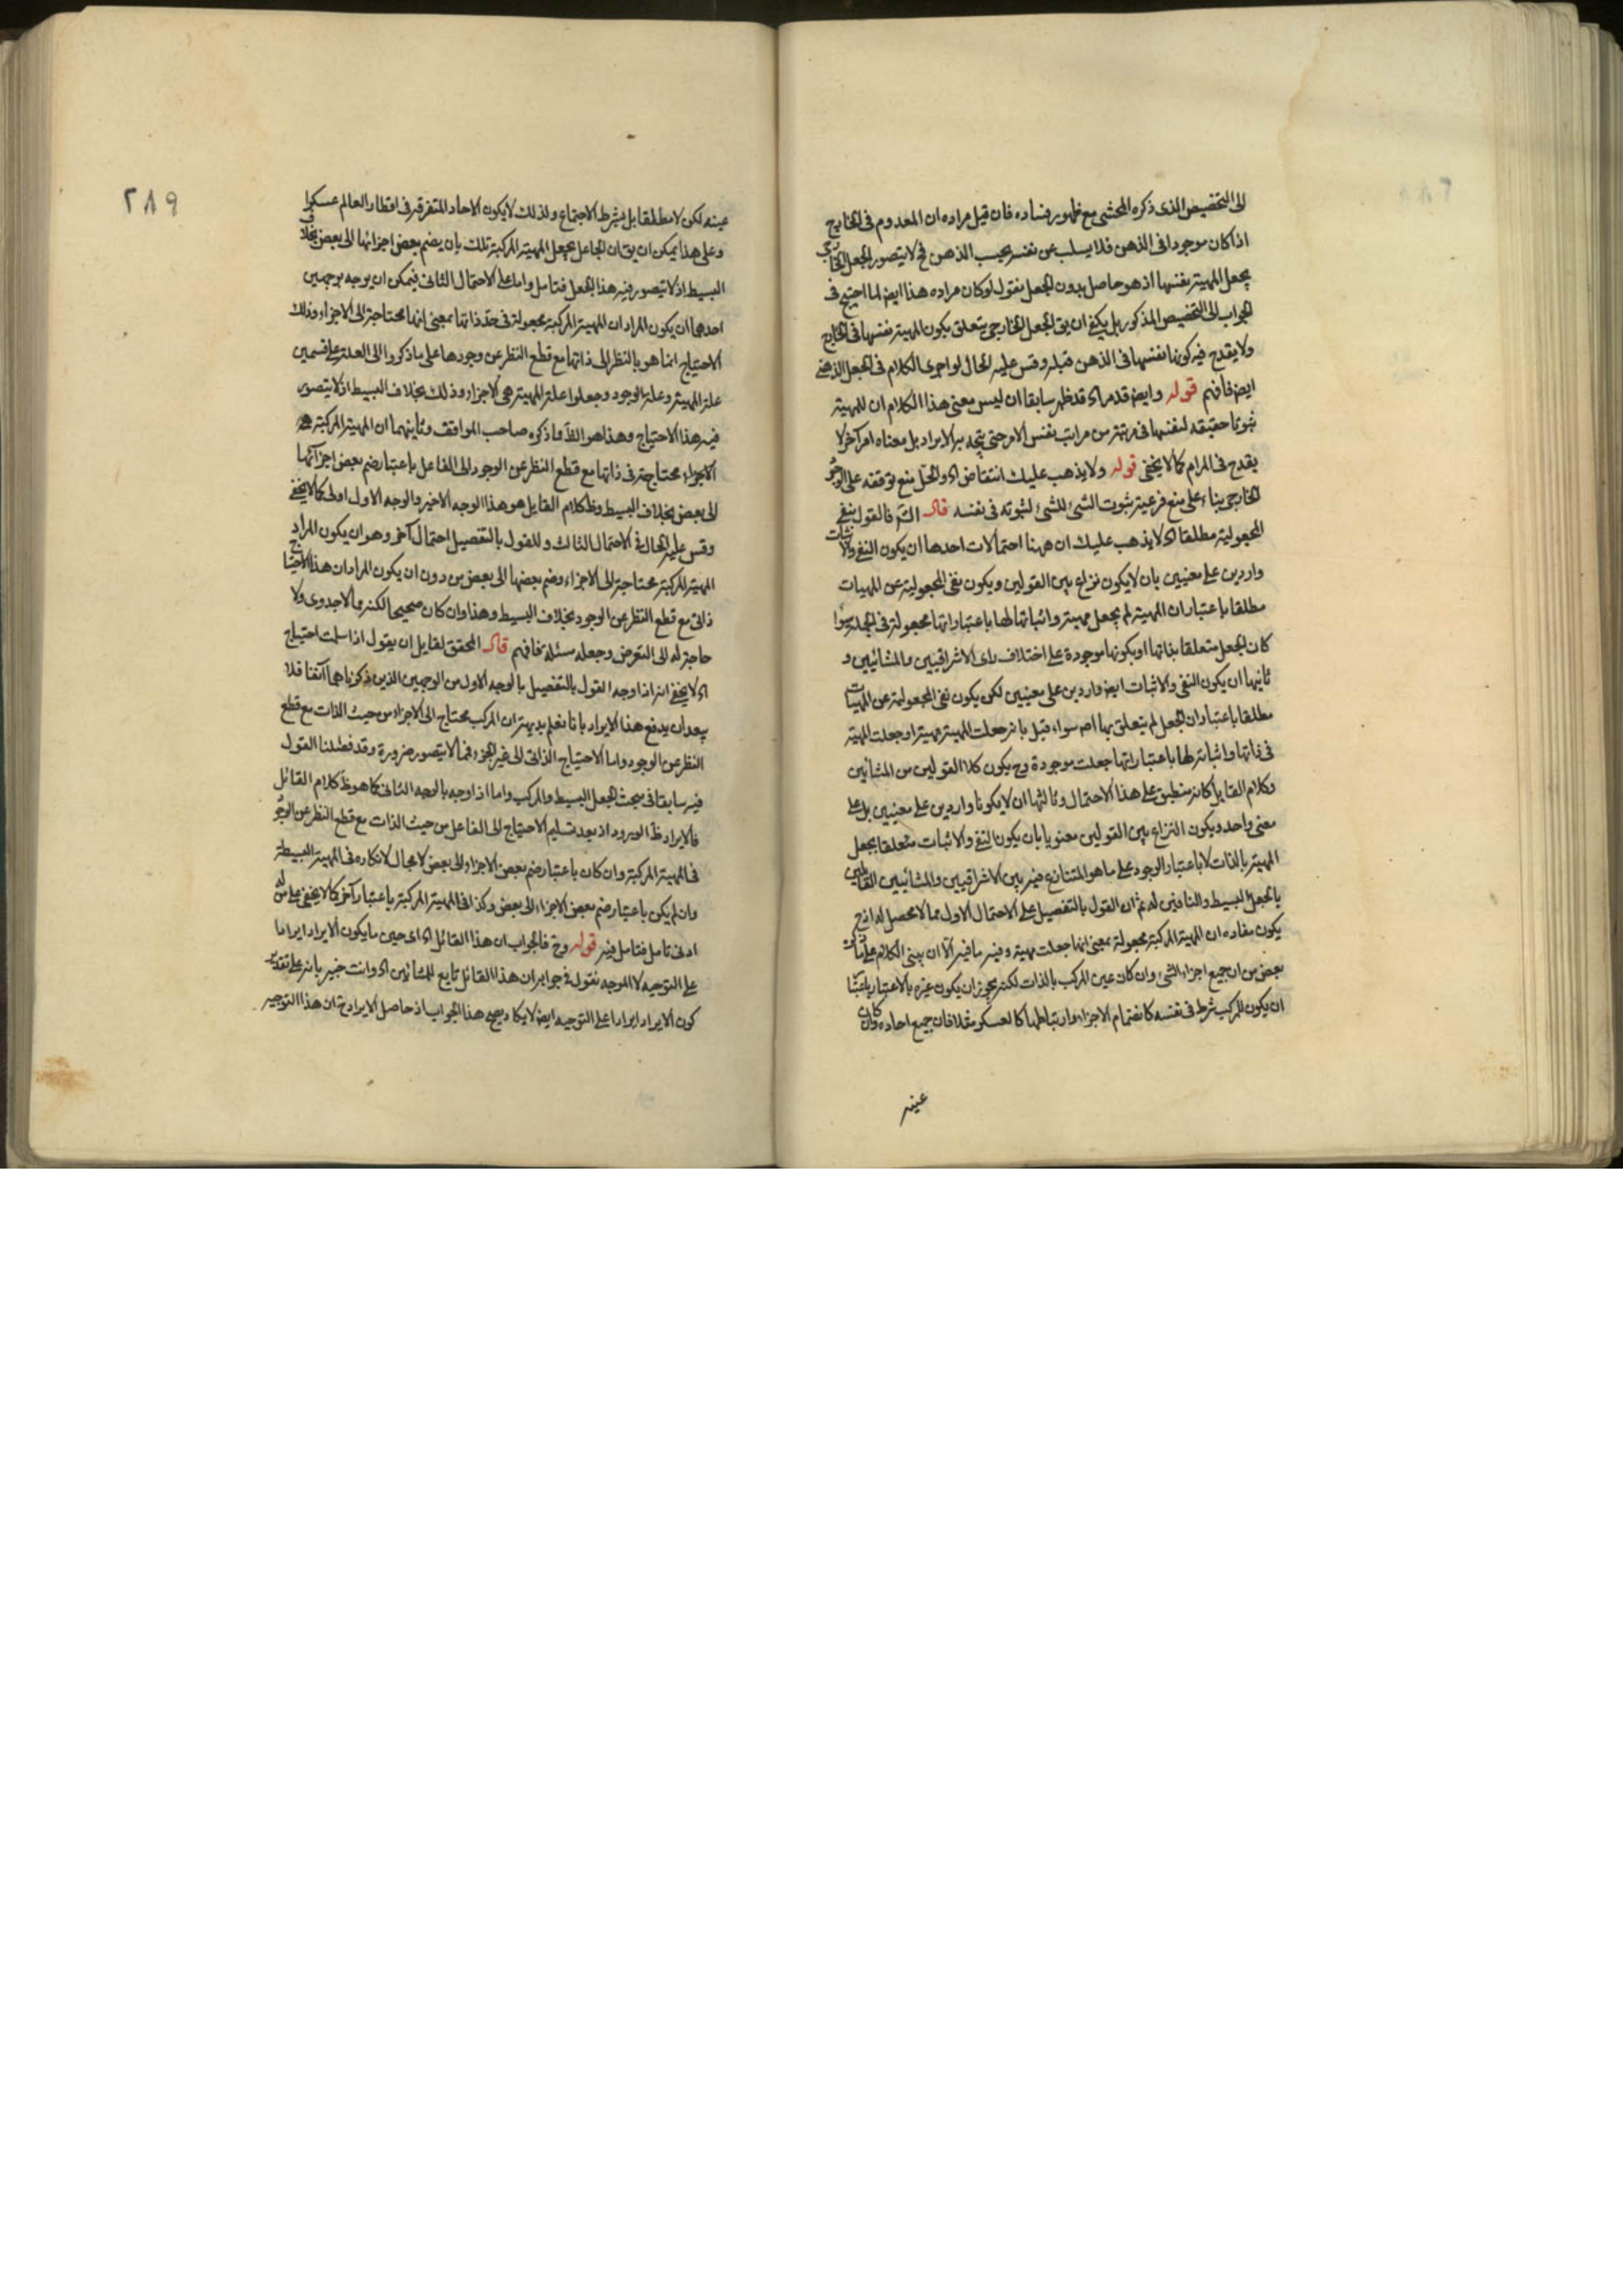 الى التخصيص الذى ذكره المحشى مع ظهور فساده فان قيل مراده ان المعدوم فى الخارج
اذا كان موجودا فى الذهن فلا يسلب عن نفسه بحسب الذهن فح لا يتصور الجعل الخارجى
بجعل المهية نفسها اذ هو حاصل بدون الجعل نقول لو كان مراده هذا ايض لما احتيج فى
الجواب الى التخصيص المذكور بل يكفى ان يق الجعل الخارجى يتعلق بكون المهية نفسها فى الخارج
ولا يقدح فيه كونها نفسها فى الذهن قبله وقس عليه الحال لو اجرى الكلام فى الجعل الذهنى
ايض فافهم قوله وايض قد مر اه قد ظهر سابقا ان ليس معنى هذا الكلام ان للمهية
ثبوتا حقيقة لنفسها فى مرتبة من مراتب نفس الامر حتى يتجه به الايراد بل معناه امر آخر لا
يقدح فى المرام كما لا يخفى قوله ولا يذهب عليك انتقاض اه والحل منع توقفه على الوجود
الخارجى بناء على منع فرعية ثبوت الشئ للشئ لثبوته فى نفسه قال الشم فالقول بنفى
المجعولية مطلقا اه لا يذهب عليك ان ههنا احتمالات احدها ان يكون النفى والاثبات
واردين على معنيين بان لا يكون نزاع بين القولين ويكون نفى المجعولية عن المهيات
مطلقا باعتبار ان المهية لم يجعل مهية واثباتها لها باعتبار انها مجعولة فى الجملة سواء
كان الجعل متعلقا بذاتها او بكونها موجودة على اختلاف راى الاشراقيين والمشائيين و
ثانيها ان يكون النفى والاثبات ايض واردين على معنيين لكن يكون نفى المجعولية عن المهيات
مطلقا باعتبار ان الجعل لم يتعلق بها اصم سواء قيل بانه جعلت المهية مهية او جعلت المهية
فى ذاتها واثباته لها باعتبار انها جعلت موجودة وح يكون كلا القولين من المشائين
وكلام القايل كانه منطبق على هذا الاحتمال وثالثها ان لا يكونا واردين على معنيين بل على
معنى واحد ويكون النزاع بين القولين معنويا بان يكون النفى والاثبات متعلقا بجعل
المهية بالذات لا باعتبار الوجود على ما هو المتنازع فيه بين الاشراقيين والمشائيين القائلين
بالجعل البسيط والنافين له ثم ان القول بالتفصيل على الاحتمال الاول مما لا محصل له اذ ح
يكون مفاده ان المهية المركبة مجعولة بمعنى انها جعلت مهية وفيه ما فيه الا ان يبنى الكلام على ما ذكره
بعض من ان جميع اجزاء الشئ وان كان عين المركب بالذات لكنه يجوز ان يكون غيره بالاعتبار باعتبار
ان يكون للمركب شرط فى نفسه كانضمام الاجزاء وارتباطها كالعسكر مثلا فان جميع احاده وان كان
عينه
٢٨٩
عينه لكن لا مطلقا بل بشرط الاجتماع ولذلك لا يكون الاحاد المتفرقة فى اقطار العالم عسكرا
وعلى هذا يمكن ان يق ان الجاعل يجعل المهية المركبة تلك بان يضم بعض اجزائها الى بعض بخلاف
البسيط اذ لا يتصور فيه هذا الجعل فتامل واما على الاحتمال الثانى فيمكن ان يوجه بوجهين
احدهما ان يكون المراد ان المهية المركبة مجعولة فى حد ذاتها بمعنى انها محتاجة الى الاجزاء وذلك
الاحتياج انما هو بالنظر الى ذاتها مع قطع النظر عن وجودها على ما ذكروا ان العلة على قسمين
علة المهية وعلة الوجود وجعلوا علة المهية هى الاجزاء وذلك بخلاف البسيط اذ لا يتصور
فيه هذا الاحتياج وهذا هو الذى ذكره صاحب المواقف وثانيهما ان المهية المركبة
محتاجة فى ذاتها مع قطع النظر عن الوجود الى الفاعل باعتبار ضم بعض اجزائها
الى بعض بخلاف البسيط وظ كلام القايل هو هذا الوجه الاخير والوجه الاول اولى كما لا يخفى
وقس عليه الحال فى الاحتمال الثالث وللقول بالتفصيل احتمال آخر وهو ان يكون المراد
المهية المركبة محتاجة الى الاجزاء وضم بعضها الى بعض من دون ان يكون المراد ان هذا الاحتياج
ذاتى مع قطع النظر عن الوجود بخلاف البسيط وهذا وان كان صحيحا لكنه مما لا جدوى ولا
حاجة له الى التعرض وجعله مسئلة فافهم قال المحقق لقايل ان يقول اذا سلمت احتياج
اه لا يخفى انه اذا وجه القول بالتفصيل بالوجه الاول من الوجهين الذين ذكرناهما آنفا فلا
يبعد ان يدفع هذا الايراد بانا نعلم بديهة ان المركب محتاج الى الاجزاء من حيث الذات مع قطع
النظر عن الوجود واما الاحتياج الذاتى الى غير الجزء فمما لا يتصور ضرورة وقد فصلنا القول
فيه سابقا فى مبحث الجعل البسيط والمركب واما اذا وجه بالوجه الثانى كما هو ظ كلام القائل
فالايراد ظ الورود اذ بعد تسليم الاحتياج الى الفاعل من حيث الذات مع قطع النظر عن الوجود
فى المهية المركبة وان كان باعتبار ضم بعض الاجزاء الى بعض لا مجال لانكاره فى المهية البسيطة
وان لم يكن باعتبار ضم بعض الاجزاء الى بعض وكذا فى المهية المركبة باعتبار آخر كما لا يخفى على من له
ادنى تامل فتامل فيه قوله وح فالجواب ان هذا القائل اه اى حين ما يكون الايراد ايرادا
على التوجيه لا الموجه نقول فى جوابه ان هذا القائل تابع للمشائين اه وانت خبير بانه على تقدير
كون الايراد ايرادا على التوجيه ايض لا يكاد يصح هذا الجواب اذ حاصل الايراد ح ان هذا التوجيه